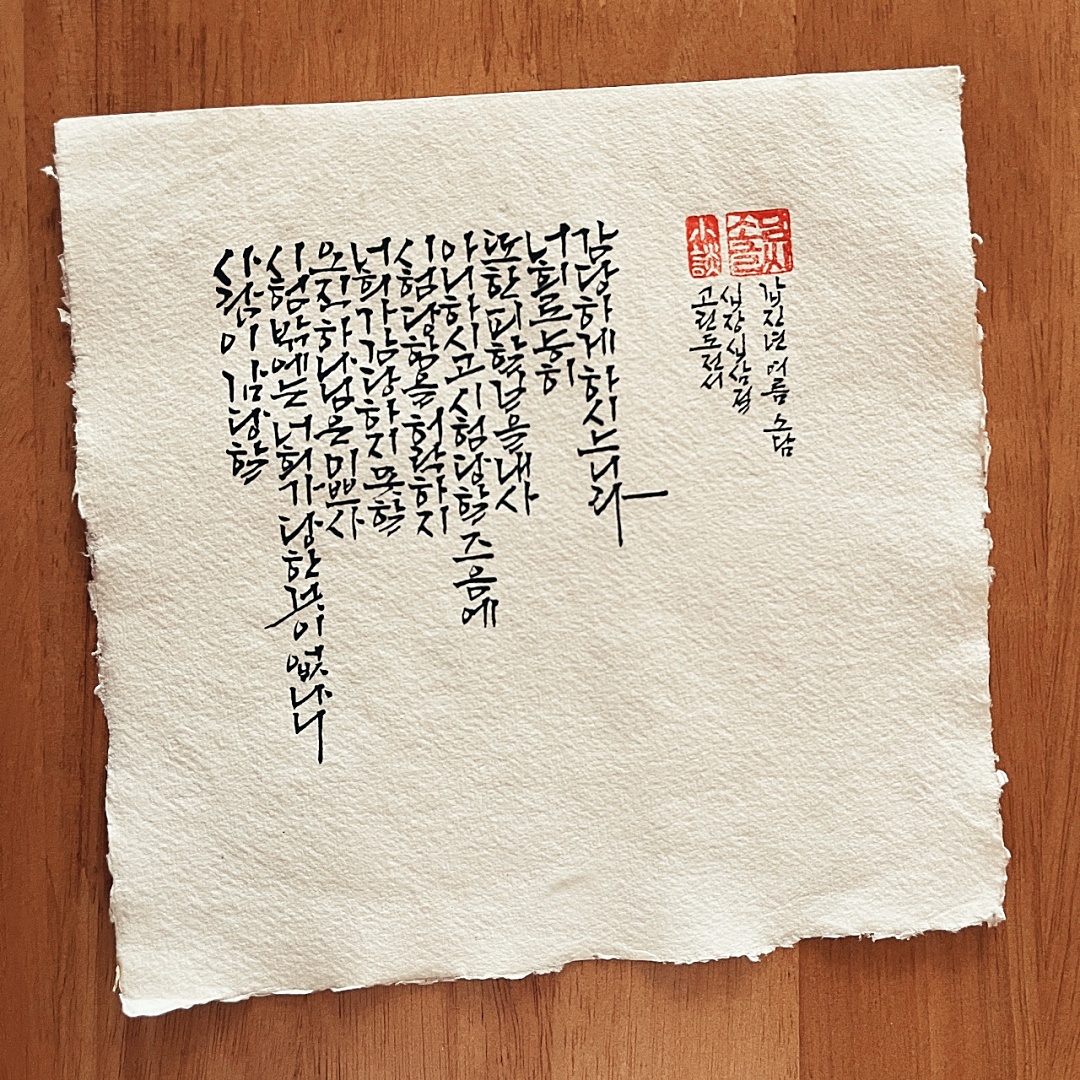 사람이 감당할
시험밖에는 너희가 당한 것이 없나니
오직 하나님은 미쁘사
너희가 감당하지 못할
시험 당함을 허락하지
아니하시고 시험 당할 즈음에
또한 피할 길을 내사
너희로 능히
감당하게 하시느니라
고린도전서
십장 십삼절
갑진년 여름 소담
小談